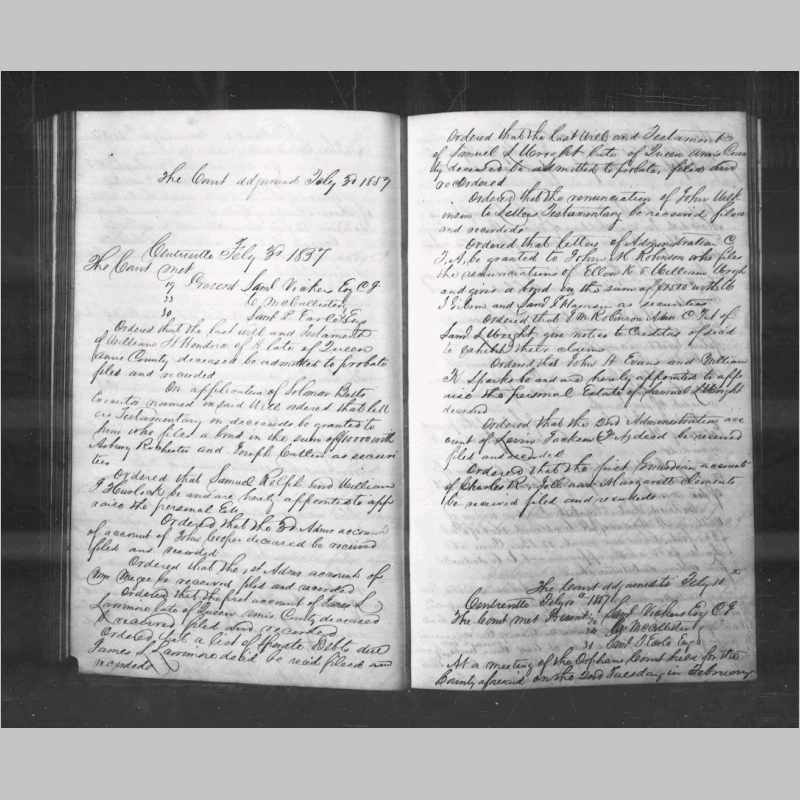 The Court adjourned Feby 3d 1857
Centreville Feby 3d 1857
The Court met
Present Saml Vickers Esq C J
" McCallister
" Saml T Earle Esq
Ordered that the last will and Testament
of William H of K late of Queen
Anns County deceased be admitted to probate
filed and recorded
On application of Solomon Betts
Executor named in said Will ordered that lett
ers Testamentary on deceaseds be granted to
him who files a bond in the sum of with
Asbury Rochester and Joseph as securi
ties
Ordered that Samuel Relph and William
J Hurlock be and are hereby appointed to app
raise the personal
Ordered that the 3d Adms account
of account of John Cooper deceased be received
filed and recorded
Ordered that the 1st Adms accounts of
Wm be received filed and recorded
Ordered that the first account of James L
Larrimore late of Queen Anns County deceased
be received filed and recorded
Ordered, that a list of Debts due
James L Larrimore decd be recd filed and
recorded
Ordered that the last Will and Testament
of Samuel L Wright late of Queen Anns Coun
ty deceased be admitted to probate, filed and
recorded
Ordered that the renunciation of John Wilk
inson to Letters Testamentary be received filed
and recorded
Ordered that letters of Administration C
T. A. be granted to John M Robinson who files
the renunciations of Ellen K & William Wright
and gives a bond in the sum of with
and Saml J Harrison as securities
Ordered that J M Robinson Adm C T A of
Saml L Wright give notice to Creditors of said
to exhibit their claims
Ordered that John H Evans and William
K Sparks be and are hereby appointed to app
raise the personal Estate of Samuel L Wright
deceased
Ordered that the 2nd Administration acc
ount of Jackson decd be received
filed and recorded
Ordered that the first Guardian account
of Charles R and Margarette Clements
be received filed and recorded
The Court adjourned to Feby 10th
Centreville Feby 10th 1857
The Court met Present Saml Vickers Esq C J
" McCallister
" Saml T Earle Esq
At a meeting of the Orphans Court held for the
County aforesaid on the 2nd Tuesday in February